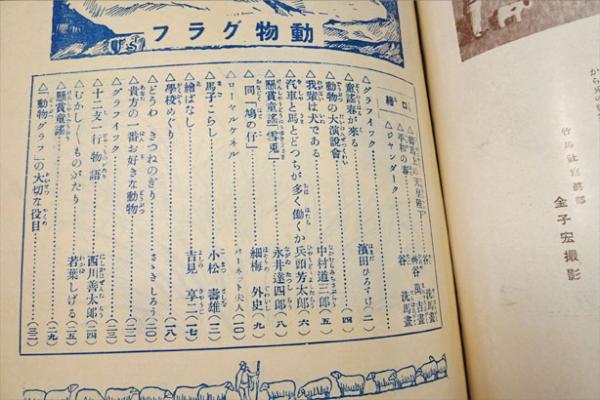 動物グラフ
口繪
△平和の春
△ジャンダーク
△グラフイツク
△童謠春が來る 濱田ひろすけ(二)
△動物の大演說會(四)
△我輩は犬である 中村道三郎(五)
△汽車と馬とどつちが多く働くか 兵頭芳太郎(六)
△懸賞童謠「雪兎」 永井達四郎(八)
△同「鳩の仔」 細梅外史(九)
△ローヤルケネル バーネツト夫人(一〇)
△馬子こらし 小松壽雄(一三)
△繪ばなし 吉見享二(一七)
△學校めぐり(一八)
△どうわ きつねのぎり さゝきしろう(二〇)
△貴方の一番お好きな動物(二二)
△グラフイツク(二三)
△十二支一行物語 西川善太郎(二四)
△むかし〳〵ものがたり 若葉しげる(二五)
△懸賞童謠(二九)
△「動物グラフ」の大切な役目(三二)
竹馬社寫眞部
金子宏撮影